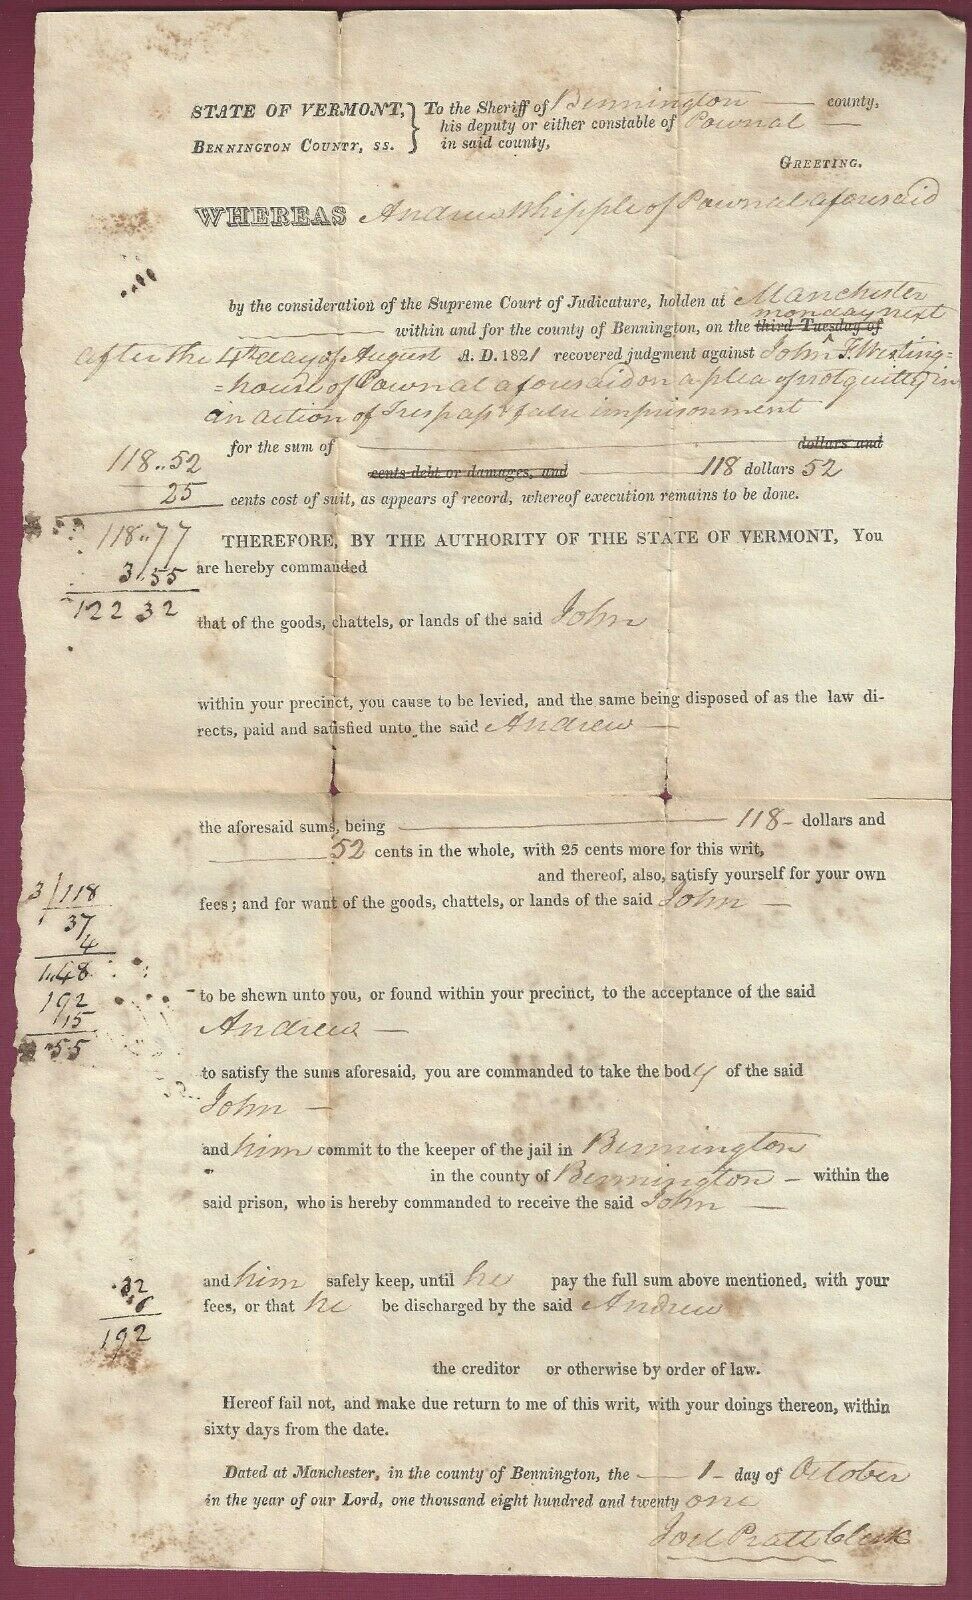 STATE OF VERMONT, } To the Sheriff of Bennington — county,
BENNINGTON COUNTY, SS. his deputy or either constable of Pownal —
in said county,
GREETING.
WHEREAS Andrew Whipple of Pownal aforesaid
by the consideration of the Supreme Court of Judicature, holden at Manchester
monday next
within and for the county of Bennington, on the third Tuesday of
after the 4th day of August A. D. 1821 recovered judgment against John F. Westing=
=house of Pownal aforesaid on a plea of not guilty in
an action of Trespass & false imprisonment
for the sum of dollars and
cents debt or damages, and 118 dollars 52
cents cost of suit, as appears of record, whereof execution remains to be done.
118..52
25
118..77
3.55
122 32
THEREFORE, BY THE AUTHORITY OF THE STATE OF VERMONT, You
are hereby commanded
that of the goods, chattels, or lands of the said John
within your precinct, you cause to be levied, and the same being disposed of as the law di-
rects, paid and satisfied unto the said Andrew —
the aforesaid sums, being 118 - dollars and
52 cents in the whole, with 25 cents more for this writ,
and thereof, also, satisfy yourself for your own
fees; and for want of the goods, chattels, or lands of the said John —
3/118
37
4
1.48
192
15
55
to be shewn unto you, or found within your precinct, to the acceptance of the said
Andrew —
to satisfy the sums aforesaid, you are commanded to take the body of the said
John —
and him commit to the keeper of the jail in Bennington
in the county of Bennington — within the
said prison, who is hereby commanded to receive the said John —
and him safely keep, until he pay the full sum above mentioned, with your
fees, or that he be discharged by the said Andrew
32
6
192
the creditor or otherwise by order of law.
Hereof fail not, and make due return to me of this writ, with your doings thereon, within
sixty days from the date.
Dated at Manchester, in the county of Bennington, the — 1 - day of October
in the year of our Lord, one thousand eight hundred and twenty one
Joel Pratt Clerk